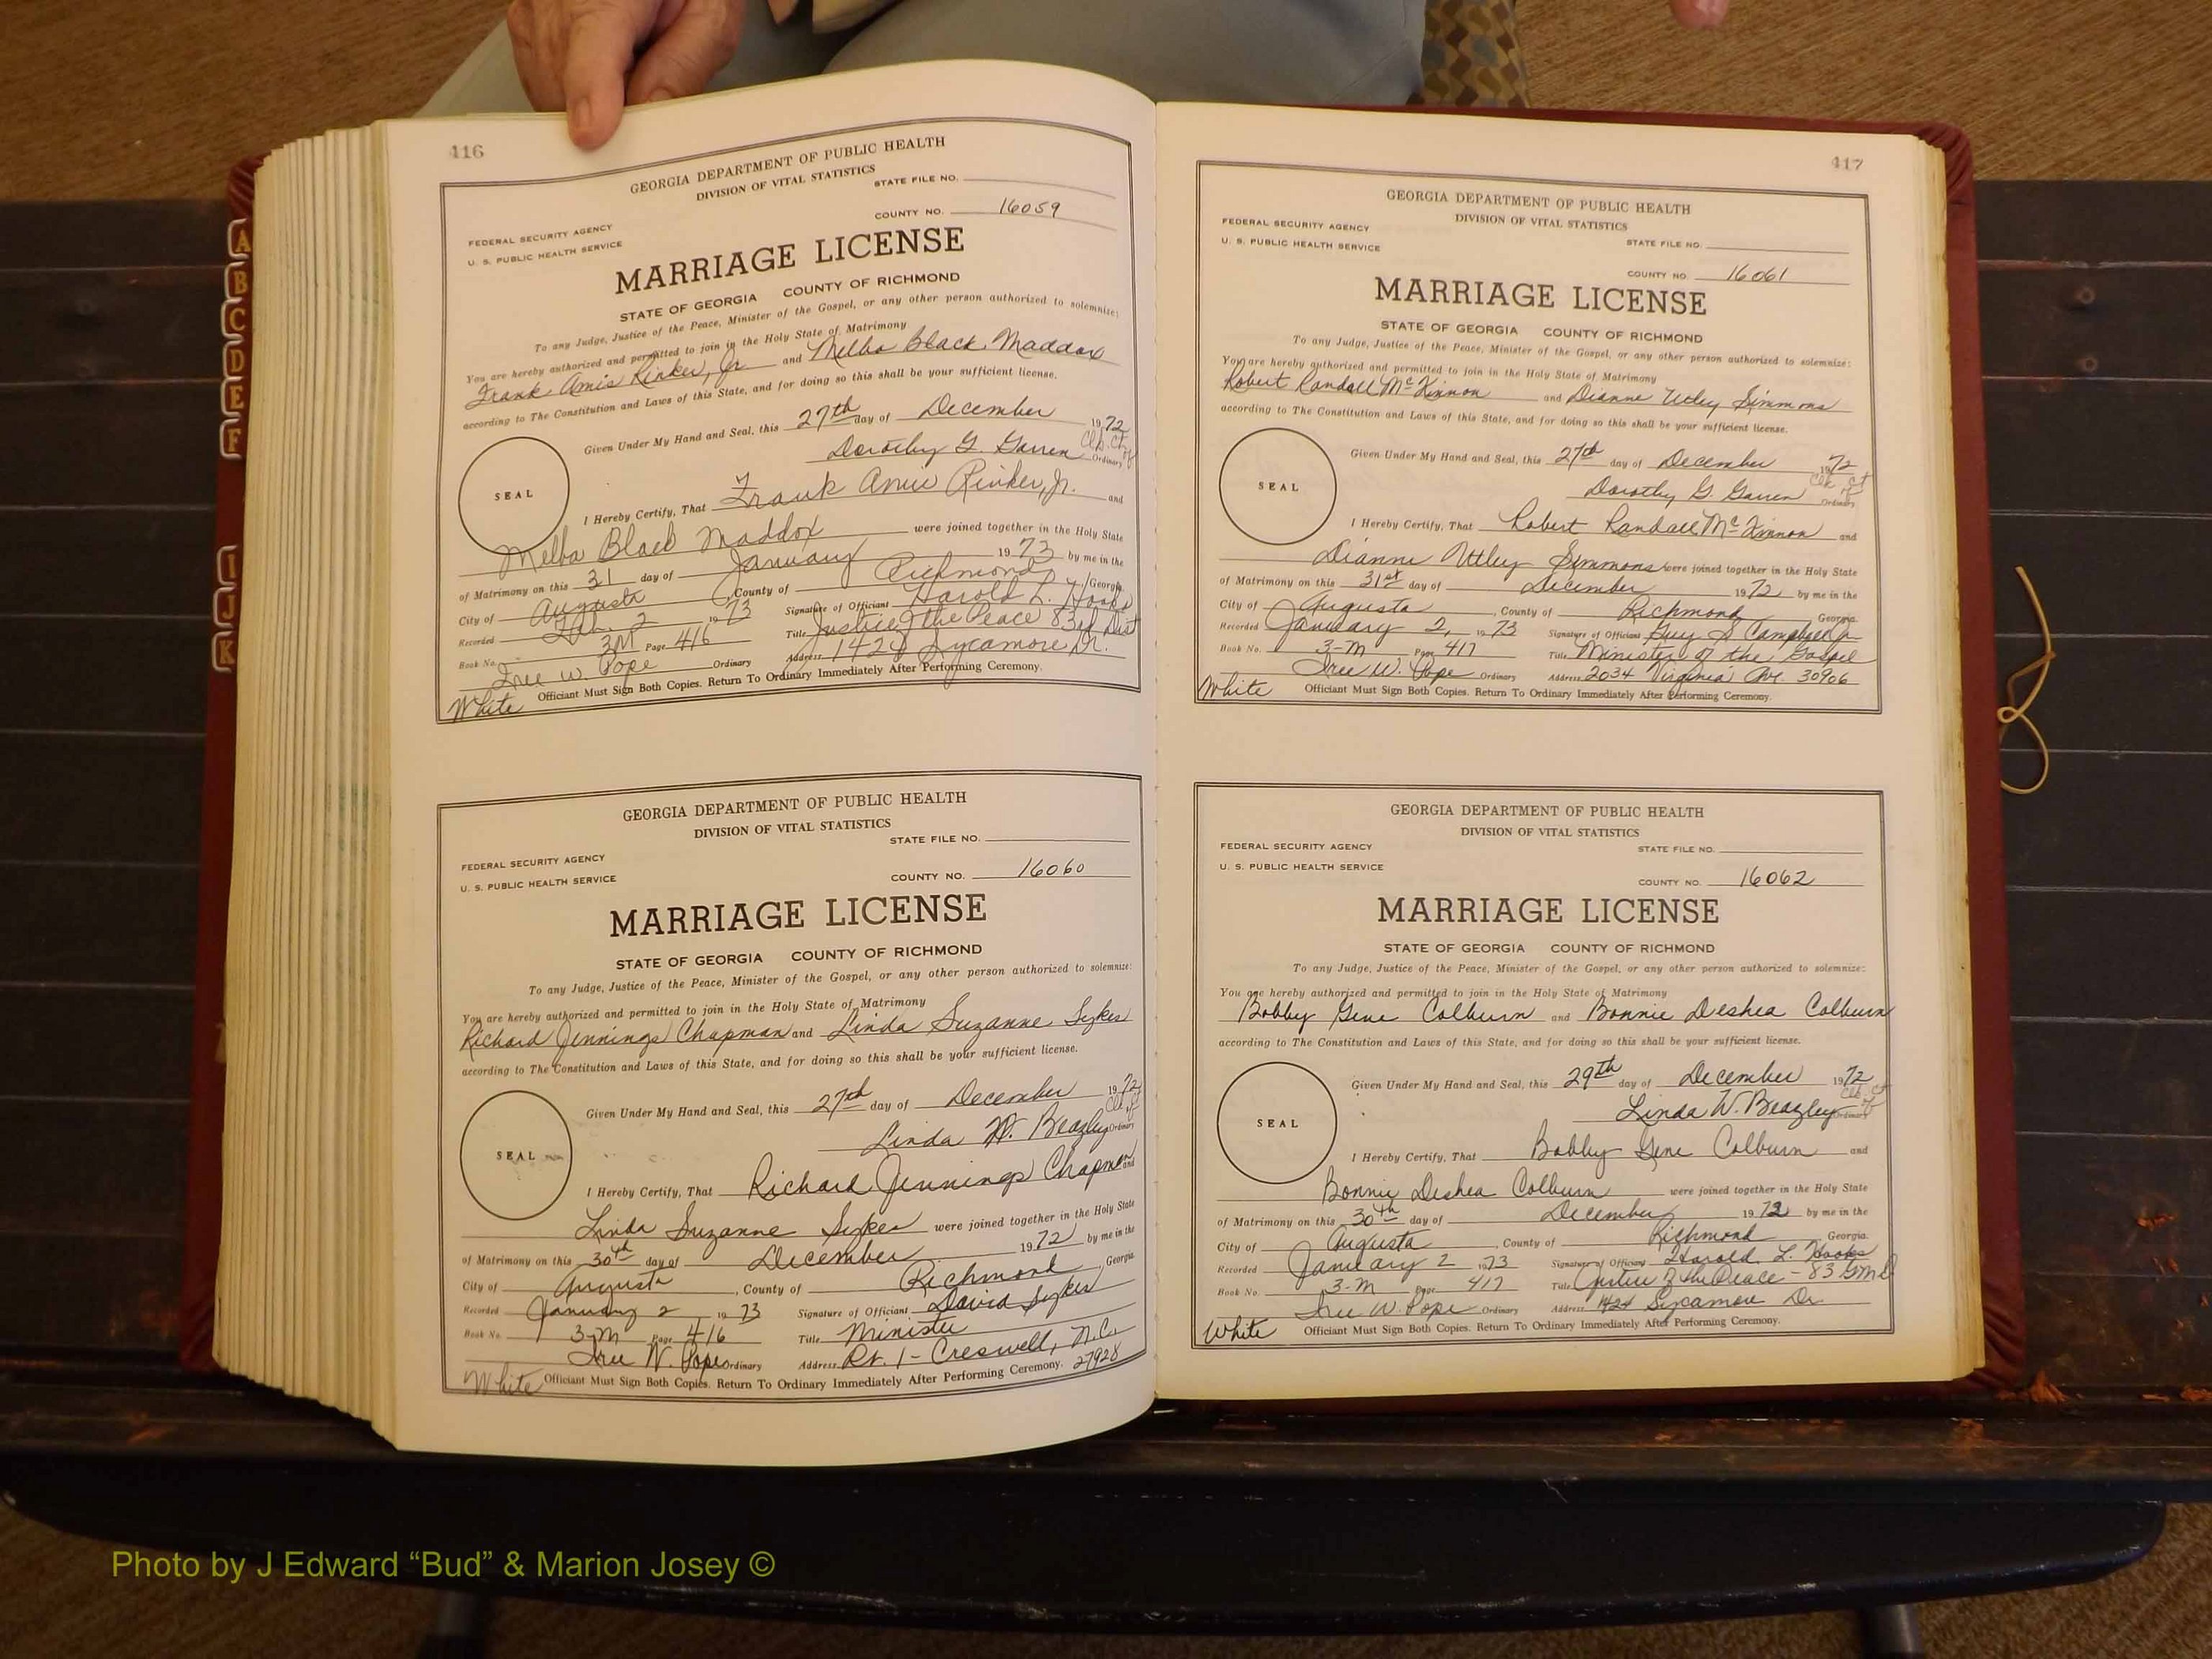 A
B
C
D
E
F
I
J
K
416
GEORGIA DEPARTMENT OF PUBLIC HEALTH
DIVISION OF VITAL STATISTICS
STATE FILE NO.
COUNTY NO. 16059
FEDERAL SECURITY AGENCY
U. S. PUBLIC HEALTH SERVICE
MARRIAGE LICENSE
STATE OF GEORGIA COUNTY OF RICHMOND
To any Judge, Justice of the Peace, Minister of the Gospel, or any other person authorized to solemnize:
You are hereby authorized and permitted to join in the Holy State of Matrimony
Frank Amis Rinker, Jr. and Melba Black Maddox
according to The Constitution and Laws of this State, and for doing so this shall be your sufficient license.
Given Under My Hand and Seal, this 27th day of December 1972
Dorothy G. Garren Clk. Ct. of Ordinary
SEAL
I Hereby Certify, That Frank Amis Rinker, Jr. and
Melba Black Maddox were joined together in the Holy State
of Matrimony on this 31 day of January 1973 by me in the
City of Augusta County of Richmond, Georgia
Recorded Feb. 2 1973 Signature of Officiant Harold L. Hooks
Book No. 3M Page 416 Title Justice of the Peace 83rd Dist
Iree W. Pope Ordinary Address 1424 Sycamore Dr.
White Officiant Must Sign Both Copies. Return To Ordinary Immediately After Performing Ceremony.
GEORGIA DEPARTMENT OF PUBLIC HEALTH
DIVISION OF VITAL STATISTICS
STATE FILE NO.
FEDERAL SECURITY AGENCY
U. S. PUBLIC HEALTH SERVICE
COUNTY NO. 16060
MARRIAGE LICENSE
STATE OF GEORGIA COUNTY OF RICHMOND
To any Judge, Justice of the Peace, Minister of the Gospel, or any other person authorized to solemnize:
You are hereby authorized and permitted to join in the Holy State of Matrimony
Richard Jennings Chapman and Linda Suzanne Sykes
according to The Constitution and Laws of this State, and for doing so this shall be your sufficient license.
Given Under My Hand and Seal, this 27th day of December 1972
Linda W. Beazley Clk Ct of Ordinary
SEAL
I Hereby Certify, That Richard Jennings Chapman and
Linda Suzanne Sykes were joined together in the Holy State
of Matrimony on this 30th day of December 1972 by me in the
City of Augusta, County of Richmond, Georgia
Recorded January 2 1973 Signature of Officiant David Sykes
Book No. 3-M Page 416 Title Minister
Iree W. Pope Ordinary Address Rt. 1 - Creswell, N.C. 27928
White Officiant Must Sign Both Copies. Return To Ordinary Immediately After Performing Ceremony.
417
GEORGIA DEPARTMENT OF PUBLIC HEALTH
DIVISION OF VITAL STATISTICS
FEDERAL SECURITY AGENCY
U. S. PUBLIC HEALTH SERVICE
STATE FILE NO.
COUNTY NO. 16061
MARRIAGE LICENSE
STATE OF GEORGIA COUNTY OF RICHMOND
To any Judge, Justice of the Peace, Minister of the Gospel, or any other person authorized to solemnize:
You are hereby authorized and permitted to join in the Holy State of Matrimony
Robert Randall McKinnon and Dianne Utley Simmons
according to The Constitution and Laws of this State, and for doing so this shall be your sufficient license.
Given Under My Hand and Seal, this 27th day of December 1972
Dorothy G. Garren Clk Ct of Ordinary
SEAL
I Hereby Certify, That Robert Randall McKinnon and
Dianne Utley Simmons were joined together in the Holy State
of Matrimony on this 31st day of December 1972 by me in the
City of Augusta, County of Richmond, Georgia.
Recorded January 2, 1973 Signature of Officiant Guy S Campbell Jr
Book No. 3-M Page 417 Title Minister of the Gospel
Iree W. Pope Ordinary Address 2034 Virginia Ave. 30906
White Officiant Must Sign Both Copies. Return To Ordinary Immediately After Performing Ceremony.
GEORGIA DEPARTMENT OF PUBLIC HEALTH
DIVISION OF VITAL STATISTICS
FEDERAL SECURITY AGENCY
STATE FILE NO.
U. S. PUBLIC HEALTH SERVICE
COUNTY NO. 16062
MARRIAGE LICENSE
STATE OF GEORGIA COUNTY OF RICHMOND
To any Judge, Justice of the Peace, Minister of the Gospel, or any other person authorized to solemnize:
You are hereby authorized and permitted to join in the Holy State of Matrimony
Bobby Gene Colburn and Bonnie Deshea Colburn
according to The Constitution and Laws of this State, and for doing so this shall be your sufficient license.
Given Under My Hand and Seal, this 29th day of December 1972
Linda W. Beazley Clk Ct of Ordinary
SEAL
I Hereby Certify, That Bobby Gene Colburn and
Bonnie Deshea Colburn were joined together in the Holy State
of Matrimony on this 30th day of December 1972 by me in the
City of Augusta, County of Richmond Georgia.
Recorded January 2 1973 Signature of Officiant Harold L. Hooks
Book No. 3-M Page 417 Title Justice of the Peace - 83 GMD
Iree W. Pope Ordinary Address 1424 Sycamore Dr.
White Officiant Must Sign Both Copies. Return To Ordinary Immediately After Performing Ceremony.
Photo by J Edward “Bud” & Marion Josey ©